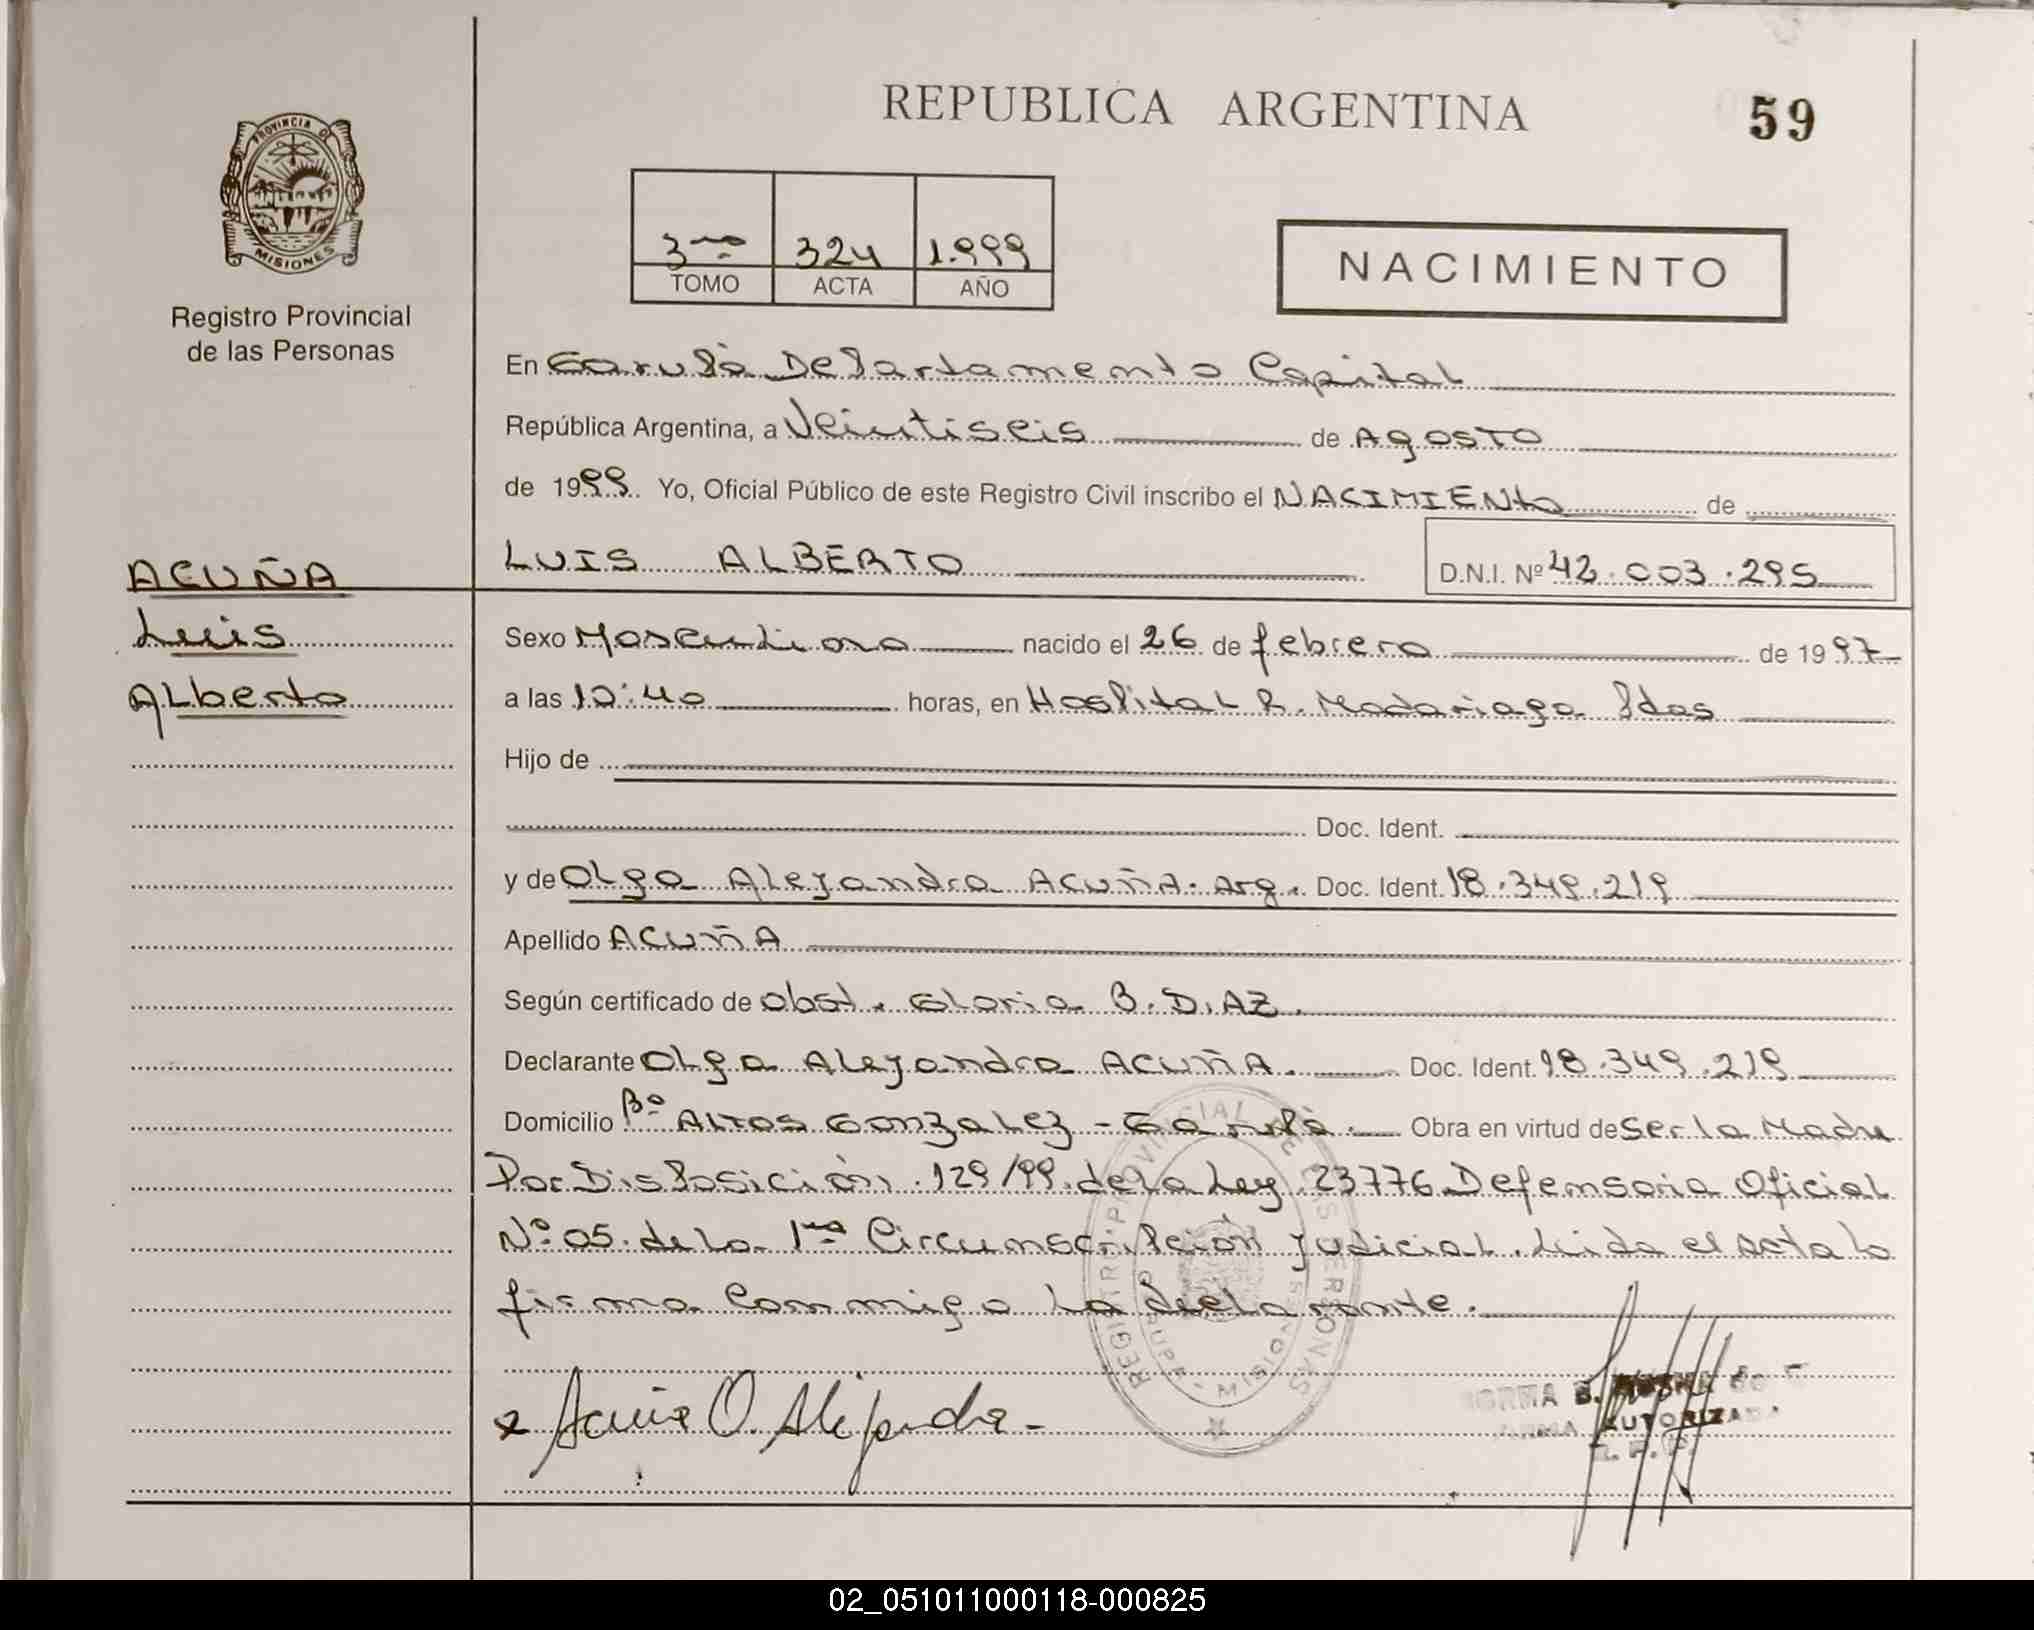 REPUBLICA ARGENTINA
59
PROVINCIA DE
MISIONES
Registro Provincial
de las Personas
3ro 324 1.999
TOMO ACTA AÑO
NACIMIENTO
En Garupá Departamento Capital
República Argentina, a Veintiseis de AGOSTO
de 1999. Yo, Oficial Público de este Registro Civil inscribo el NACIMIENto de
LUIS ALBERTO
D.N.I. Nº 42.003.295
ACUÑA
Luis
Alberto
Sexo Masculino nacido el 26 de febrero de 1997
a las 10:40 horas, en Hospital R. Madariaga Pdas
Hijo de
Doc. Ident.
y de Olga Alejandra ACUÑA. Arg. Doc. Ident. 18.349.219
Apellido ACUÑA
Según certificado de Obst. Gloria B. DIAZ.
Declarante Olga Alejandra ACUÑA. Doc. Ident. 18.349.219
Domicilio Bº ALTOS Gonzalez - Garupá. Obra en virtud de ser la Madre
Por Disposición 129/99 de la Ley 23776 Defensoria Oficial
Nº 05 de la 1ra Circunscripción Judicial. Leida el acta la
firma conmigo la declarante.
REGISTRO PROVINCIAL DE LAS PERSONAS
GARUPA - MISIONES
x Acuña O. Alejandra -
NORMA B.
FIRMA AUTORIZADA
02_051011000118-000825